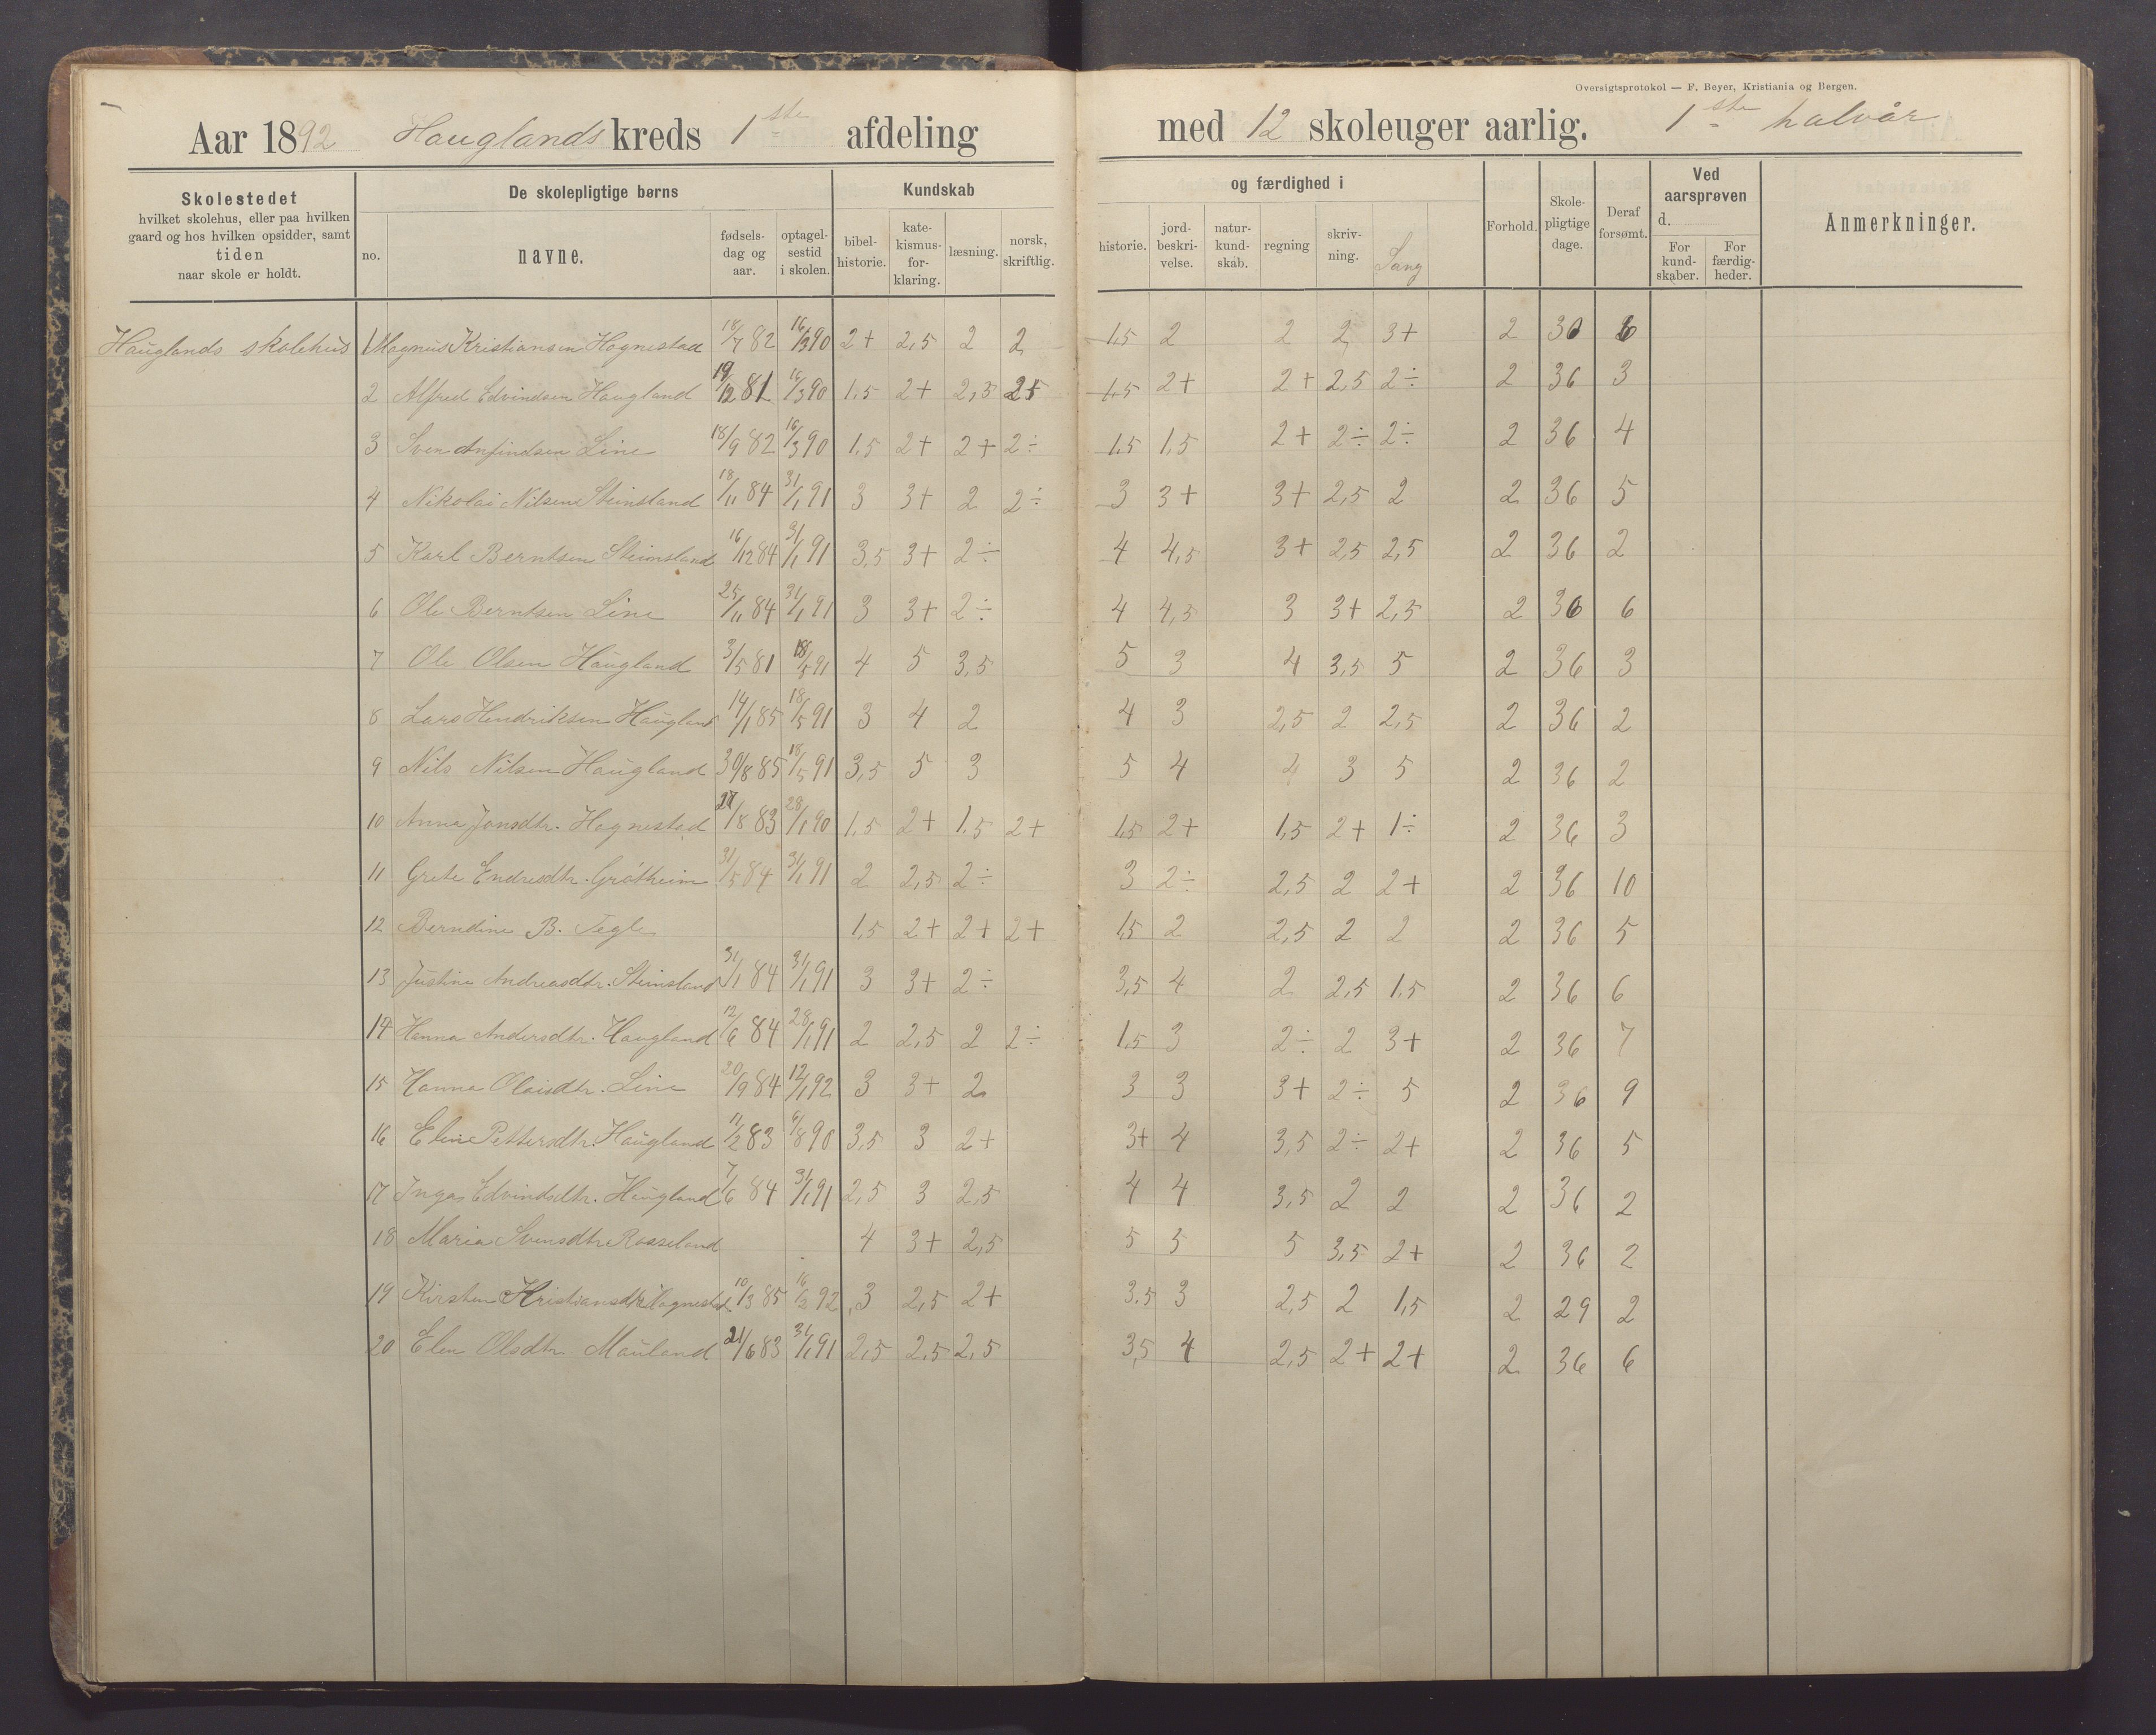 Oversigtsprotokol — F. Beyer, Kristiania og Bergen.
Aar 1892 Hauglands kreds 1ste afdeling med 12 skoleuger aarlig. 1ste halvår
Skolestedet hvilket skolehus, eller paa hvilken gaard og hos hvilken opsidder, samt tiden naar skole er holdt.
De skolepligtige børns
no. navne. fødselsdag og aar. optagelsestid i skolen.
Kundskab og færdighed i
bibelhistorie. katekismusforklaring. læsning. norsk, skriftlig. historie. jordbeskrivelse. naturkundskab. regning skrivning. Sang
Forhold. Skolepligtige dage. Deraf forsømt.
Ved aarsprøven d. For kundskaber. For færdigheder.
Anmerkninger.
Hauglands skolehus 1 Magnus Kristiansen Hognestad 18/7 82 16/3 90 2+ 2,5 2 2 1,5 2 2 2 3+ 2 30 6
2 Alfred Edvindsen Haugland 19/12 81 16/3 90 1,5 2+ 2,5 2,5 1,5 2+ 2+ 2,5 2÷ 2 36 3
3 Sven Anfindsen Line 18/9 82 16/3 90 1,5 2+ 2+ 2÷ 1,5 1,5 2+ 2÷ 2÷ 2 36 4
4 Nikolai Nilsen Steinsland 18/11 84 31/1 91 3 3+ 2 2÷ 3 3+ 3+ 2,5 2 2 36 5
5 Karl Berntsen Steinsland 16/12 84 31/1 91 3,5 3+ 2÷ 4 4,5 3+ 2,5 2,5 2 36 2
6 Ole Berntsen Line 25/11 84 31/1 91 3 3+ 2÷ 4 4,5 3 3+ 2,5 2 36 6
7 Ole Olsen Haugland 3/5 81 18/5 91 4 5 3,5 5 3 4 3,5 5 2 36 3
8 Lars Hendriksen Haugland 14/1 85 18/5 91 3 4 2 4 3 2,5 2 2,5 2 36 2
9 Nils Nilsen Haugland 30/8 85 18/5 91 3,5 5 3 5 4 4 3 5 2 36 2
10 Anna Jonsdtr. Hognestad 27/8 83 28/1 90 1,5 2+ 1,5 2+ 1,5 2+ 1,5 2+ 1÷ 2 36 3
11 Grete Endresdtr. Grótheim 31/5 84 31/1 91 2 2,5 2÷ 3 2÷ 2,5 2 2+ 2 36 10
12 Berndine B. Tegle 1,5 2+ 2+ 2+ 1,5 2 2,5 2 2 2 36 5
13 Justine Andreasdtr. Steinsland 31/1 84 31/1 91 3 3+ 2÷ 3,5 4 2 2,5 1,5 2 36 6
14 Hanna Andersdtr. Haugland 12/6 84 28/1 91 2 2,5 2 2÷ 1,5 3 2÷ 2 3+ 2 36 7
15 Hanna Olaisdtr. Line 20/9 84 12/1 92 3 3+ 2 3 3 3+ 2÷ 5 2 36 9
16 Elin Pettersdtr. Haugland 11/2 83 6/8 90 3,5 3 2+ 3+ 4 3,5 2÷ 2+ 2 36 5
17 Inga Edvindsdtr. Haugland 7/6 84 31/1 91 2,5 3 2,5 4 4 3,5 2 2 2 36 2
18 Maria Svensdtr. Rosseland 4 3+ 2,5 5 5 5 3,5 2+ 2 36 2
19 Kirsten Kristiansdtr. Hognestad 10/3 85 16/2 92 3 2,5 2+ 3,5 3 2,5 2 1,5 2 29 2
20 Elen Olsdtr. Mauland 21/6 83 31/1 91 2,5 2,5 2,5 3,5 4 2,5 2+ 2+ 2 36 6